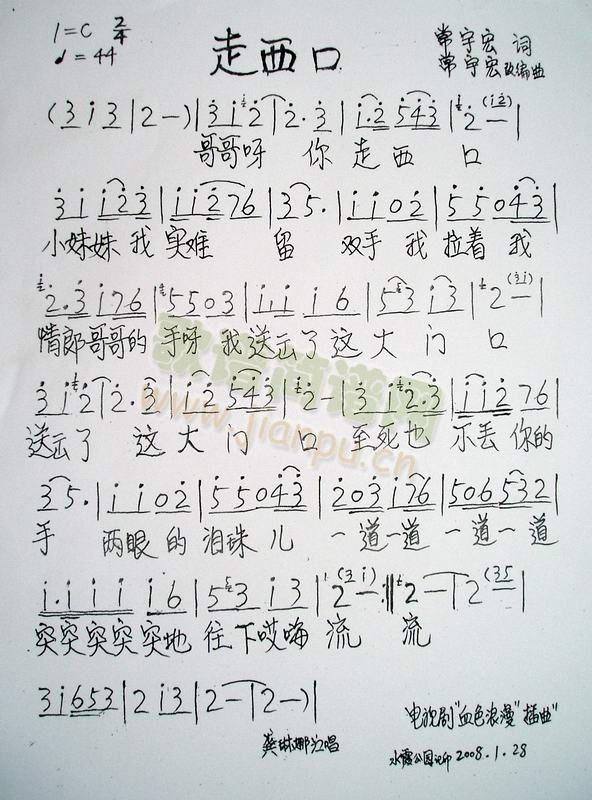 1=C 2/4
♩=44
走西口
常宇宏 词
常宇宏改编曲
(3 i 3 | 2 - ) | 3 i 2 | 2 · 3 | i · 2 5 4 3 | 2 - |
哥哥呀 你 走 西 口
3 i i 2 3 | i i 2 7 6 | 3 5 · | i i 0 2 | 5 5 0 4 3 |
小妹妹 我 实难 留 双手 我 拉着 我
2 · 3 i 7 6 | 5 5 0 3 | i i i i 6 | 5 3 i 3 | 2 - |
情郎哥哥的 手呀 我送出了这 大 门 口
3 i 2 | 2 · 3 | i i 2 5 4 3 | 2 - | 3 i 2 · 3 | i i 2 7 6 |
送出了 这 大 门 口 至死也 不丢 你的
3 5 · | i i 0 2 | 5 5 0 4 3 | 2 0 3 i 7 6 | 5 0 6 5 3 2 |
手 两眼 的 泪珠 儿 一道一道 一道一道
i · i i i i 6 | 5 3 i 3 | 2 - :‖ 2 - | 2 (3 5
突突突突突地 往下哎嗨 流 流
3 i 6 5 3 | 2 i 3 | 2 - | 2 - ) |
电视剧"血色浪漫"插曲
龚琳娜演唱
2008.1.28
www.jianpu.cn